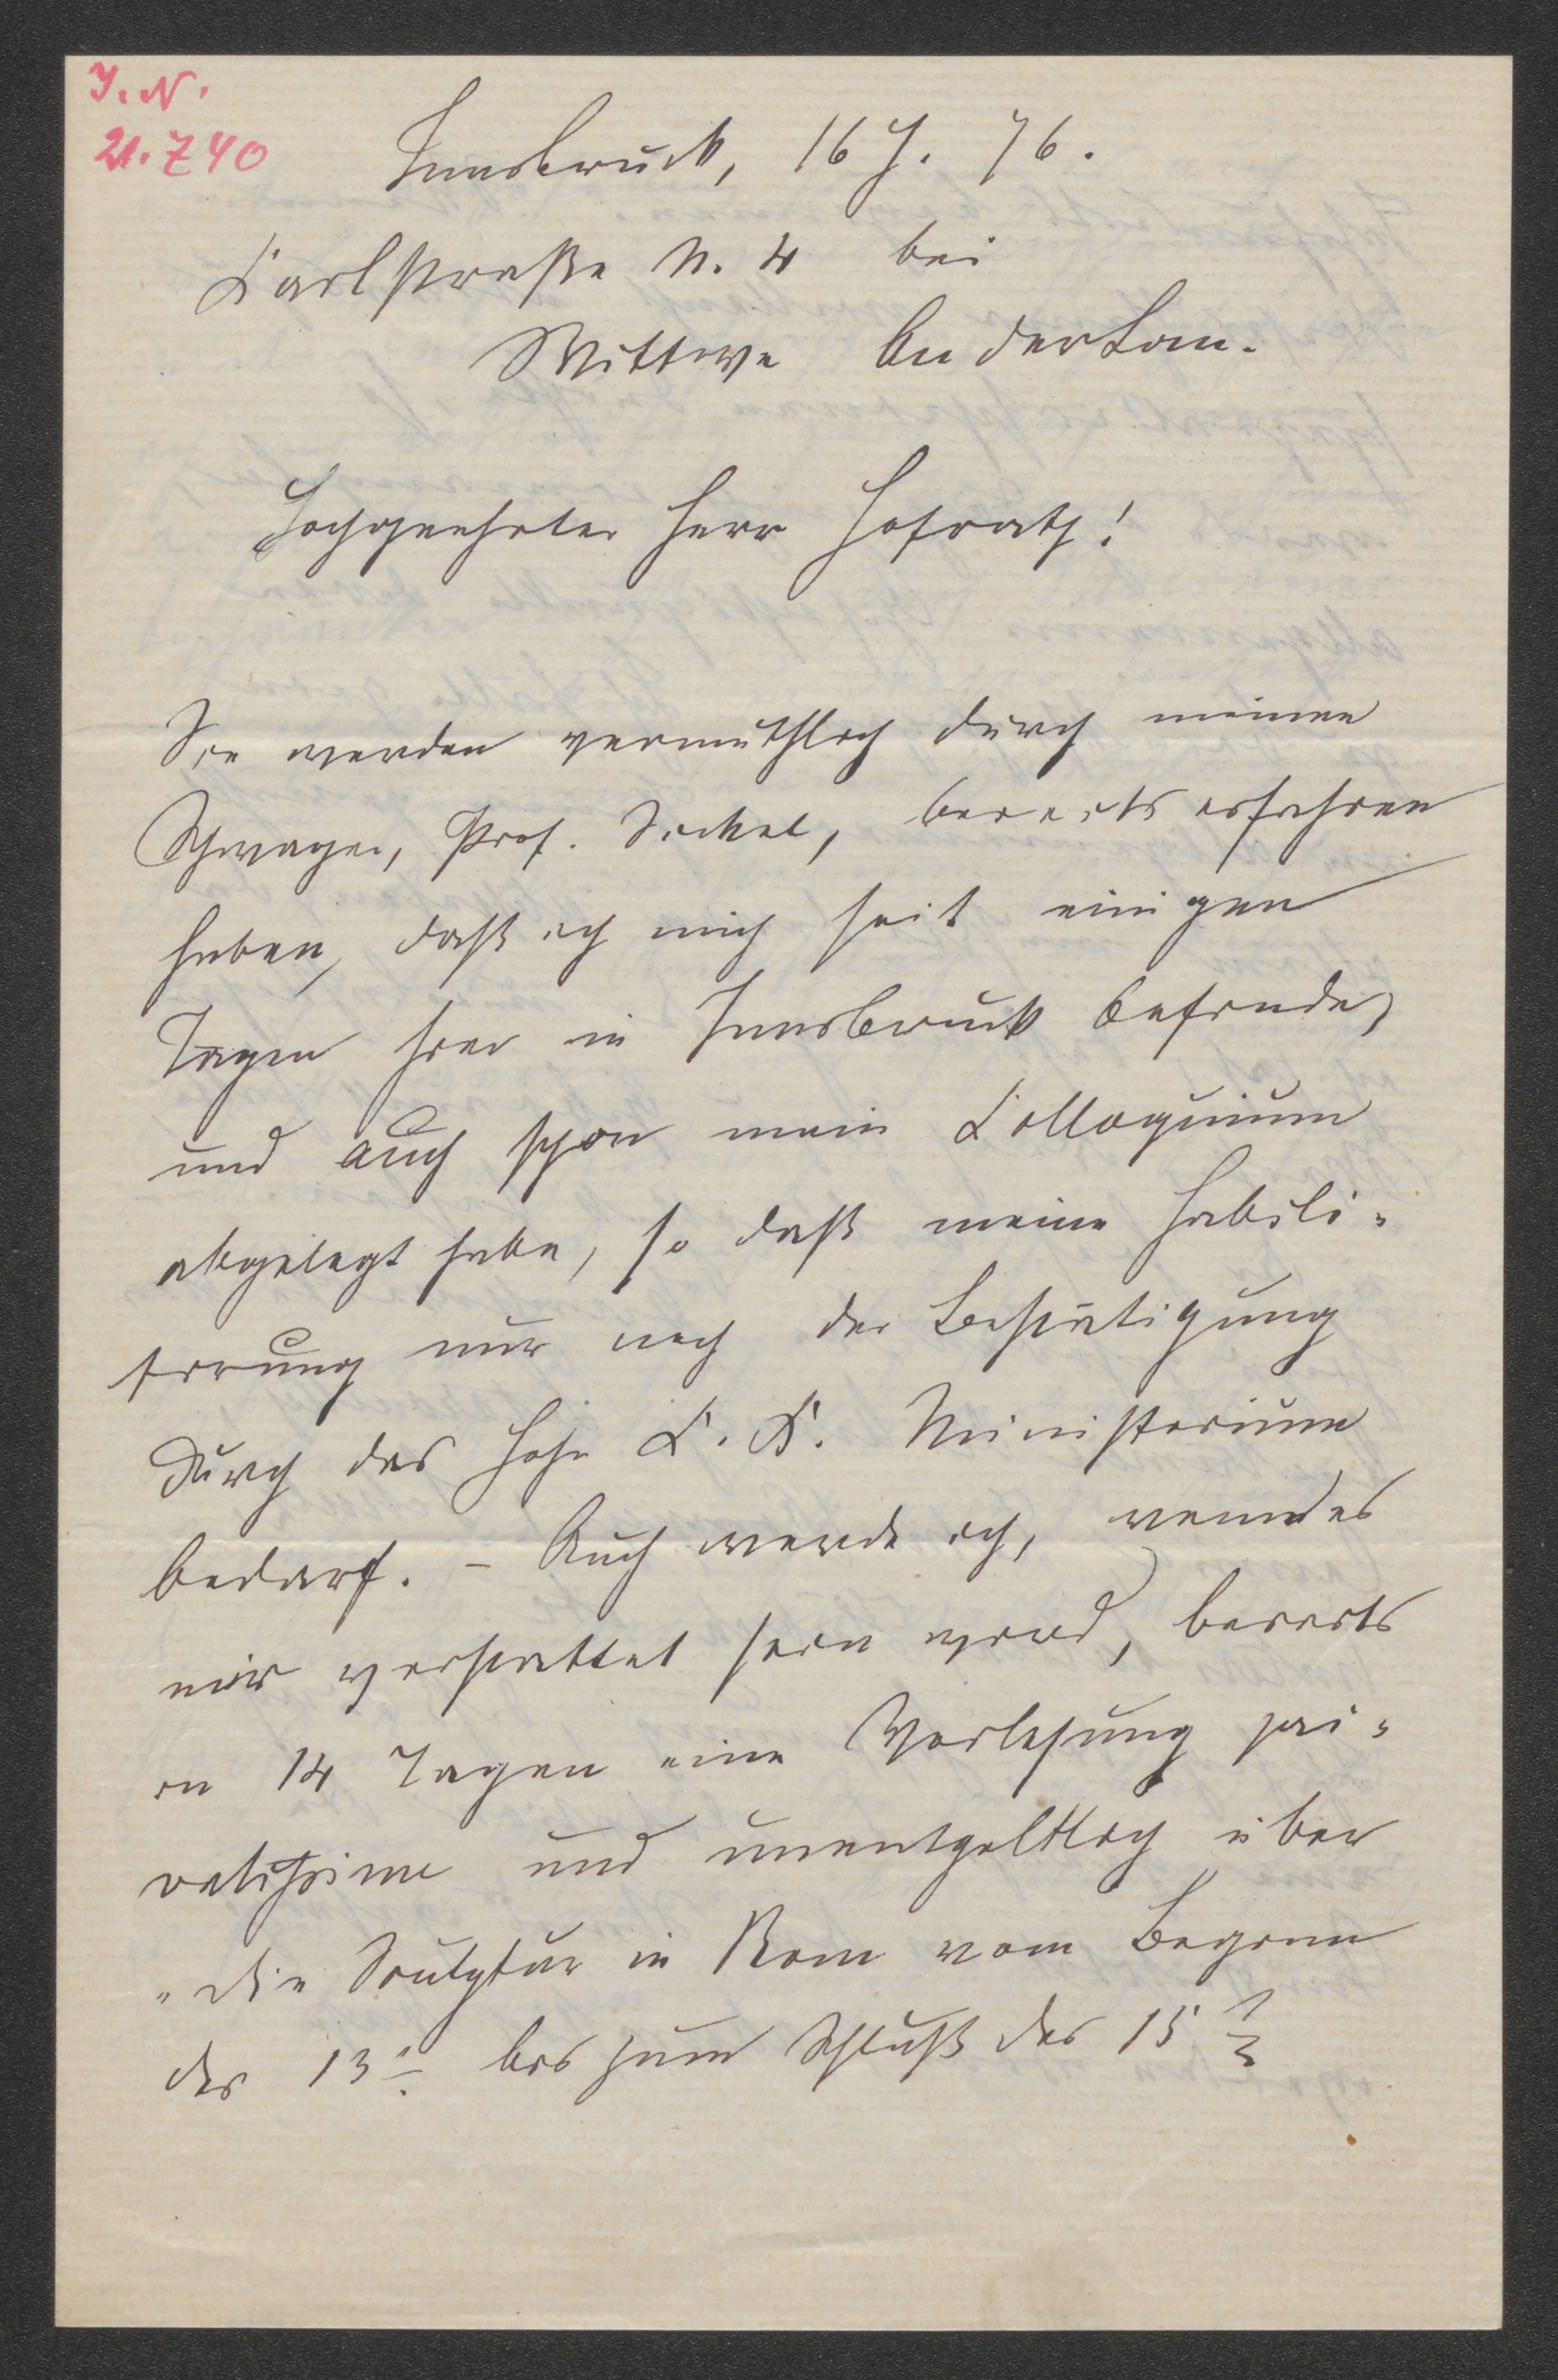 I. N.
21.740
Innsbruck, 16 J. 76.
Carlstraße N. 4 bei
Wittwe An der Lan.
Hochgeehrter Herr Hofrath!
Sie werden vermuthlich durch meinen
Schwager, Prof. Sickel, bereits erfahren
haben, daß ich mich seit einigen
Tagen hier in Innsbruck befinde,
und auch schon mein Colloquium
abgelegt habe, so daß meine Habili-
tirung nur noch der Bestätigung
durch das hohe K. K. Ministerium
bedarf. – Auch werde ich, wenn es
mir verstattet sein wird, bereits
in 14 Tagen eine Vorlesung pri-
vatissime und unentgeltlich über
"die Sculptur in Rom vom Beginn
des 13. bis zum Schluß des 15